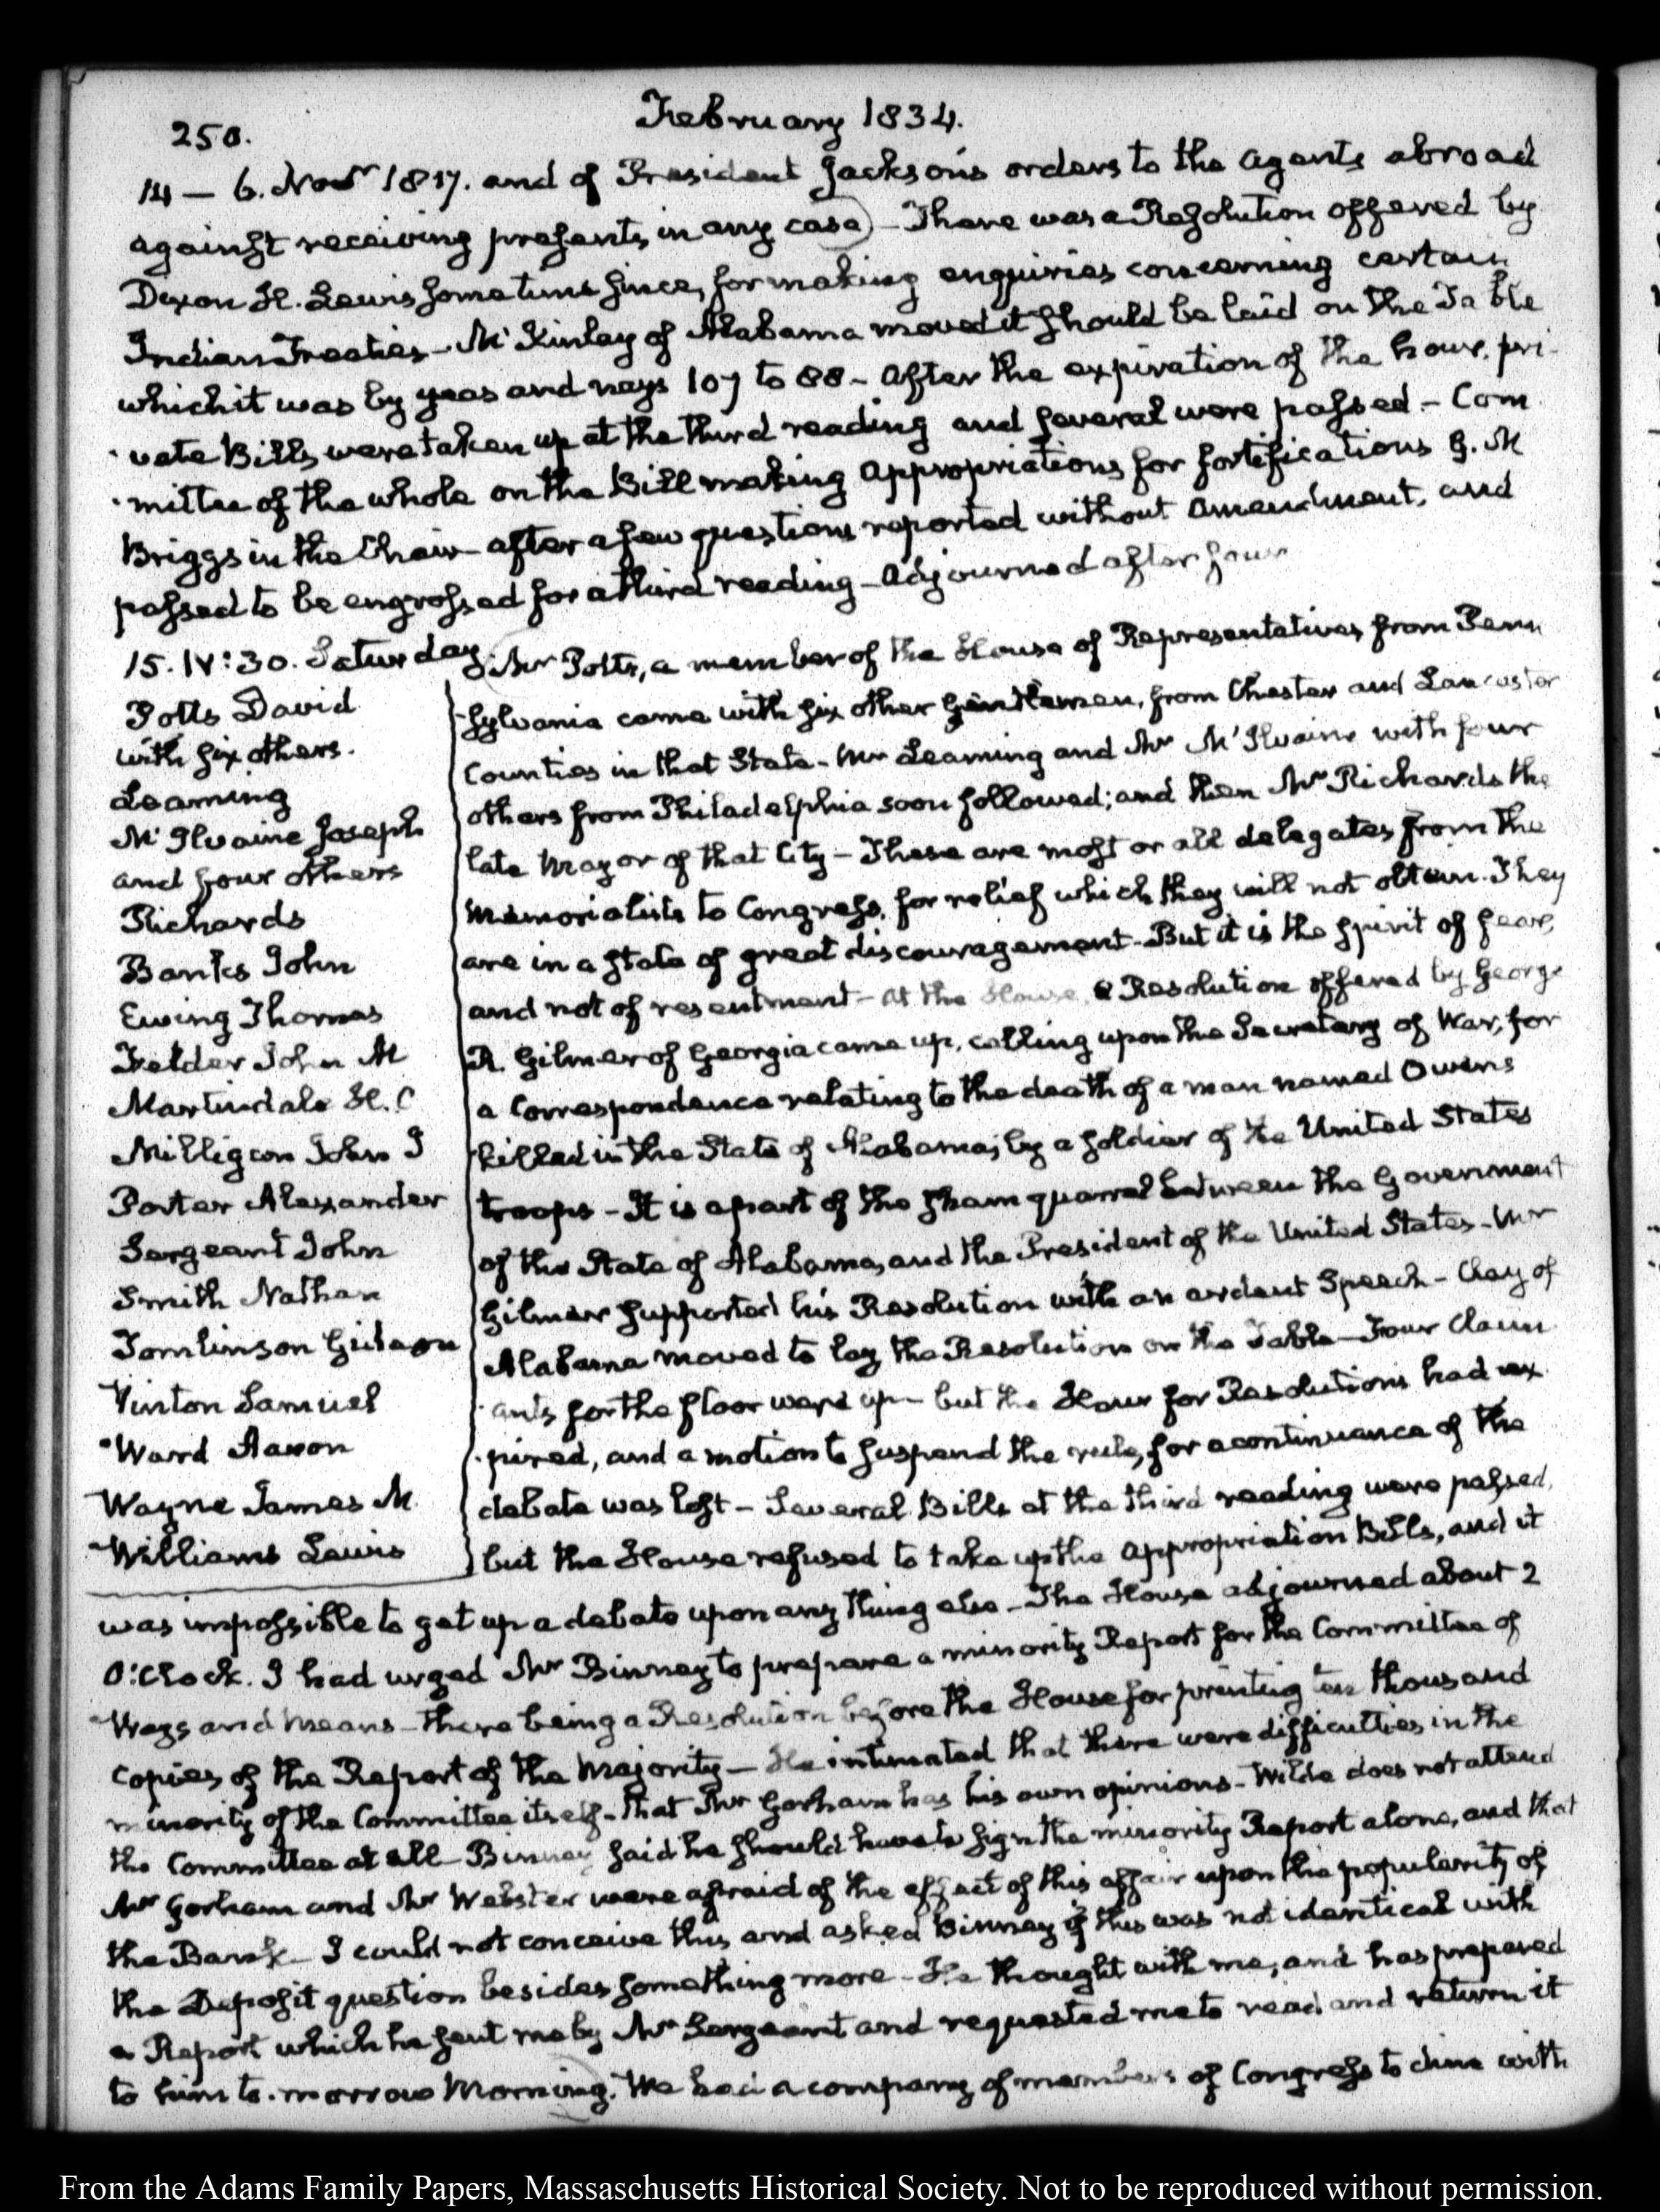 250.
February 1834.
14 — 6. Novr 1817. and of President Jackson's orders to the agents abroad
against receiving presents, in any case) - There was a Resolution offered by
Dixon H. Lewis sometime since, for making enquiries concerning certain
Indian Treaties - McKinley of Alabama moved it should be laid on the Table
which it was by yeas and nays 107 to 88 - After the expiration of the hour, pri-
-vate Bills, were taken up at the third reading and several were passed - Com
-mittee of the whole on the Bill making appropriations for fortifications G. N
Briggs in the Chair - after a few questions reported without amendment, and
passed to be engrossed for a third reading - Adjourned after four
15. IV:30. Saturday. Mr Potts, a member of the House of Representatives from Penn
Potts David
with six others.
Leaming
McIlvaine Joseph
and four others
Richards
Banks John
Ewing Thomas
Felder John M
Martindale H. C
Milligan John J
Porter Alexander
Sergeant John
Smith Nathan
Tomlinson Gideon
Vinton Samuel
Ward Aaron
Wayne James M
Williams Lewis
-sylvania came with six other Gentlemen, from Chester and Lancaster
Counties in that State - Mr Leaming and Mr McIlvaine with four
others from Philadelphia soon followed; and then Mr Richards the
late Mayor of that City - These are most or all delegates from the
Memorialists to Congress, for relief which they will not obtain. They
are in a state of great discouragement - But it is the spirit of fear,
and not of resentment - At the House, a Resolution offered by George
R. Gilmer of Georgia came up, calling upon the Secretary of War, for
a Correspondence relating to the death of a man named Owens
killed in the State of Alabama, by a soldier of the United States
troops - It is a part of the sham quarrel between the Government
of the State of Alabama, and the President of the United States - Mr
Gilmer supported his Resolution with an ardent Speech - Clay of
Alabama moved to lay the Resolution on the Table - Four Claim
-ants for the floor were up - but the Hour for Resolutions had ex
-pired, and a motion to suspend the rule, for a continuance of the
debate was lost - Several Bills at the third reading were passed,
but the House refused to take up the appropriation Bills, and it
was impossible to get up a debate upon any thing else - The House adjourned about 2
O'Clock. I had urged Mr Binney to prepare a minority Report for the Committee of
Ways and Means - there being a Resolution before the House for printing ten thousand
copies of the Report of the Majority - He intimated that there were difficulties in the
minority of the Committee itself - that Mr Gorham has his own opinions - Wilde does not attend
the Committee at all - Binney said he should have to sign the minority Report alone, and that
Mr Gorham and Mr Webster were afraid of the effect of this affair upon the popularity of
the Bank - I could not conceive this and asked Binney if this was not identical with
the Deposit question besides something more - He thought with me, and has prepared
a Report which he sent me by Mr Sergeant and requested me to read and return it
to him to-morrow Morning. We had a company of members of Congress to dine with
From the Adams Family Papers, Massachusetts Historical Society. Not to be reproduced without permission.